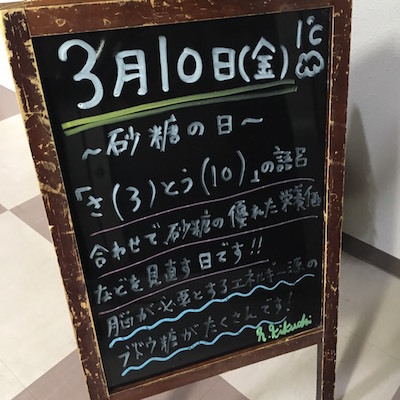 3月10日(金) 1℃
～砂糖の日～
「さ(3)とう(10)」の語呂
合わせで、砂糖の優れた栄養価
などを見直す日です!!
脳が必要とするエネルギー源の
ブドウ糖がたくさんです!
h.kikuchi